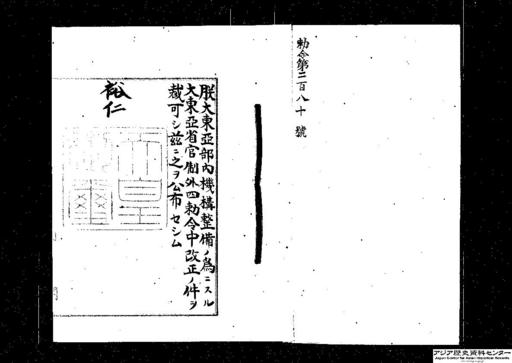 勅令第二百八十號
朕大東亞部内機構整備ノ爲ニスル
大東亞省官制外四勅令中改正ノ件ヲ
裁可シ茲ニ之ヲ公布セシム
裕仁
アジア歴史資料センター
Japan Center for Asian Historical Records